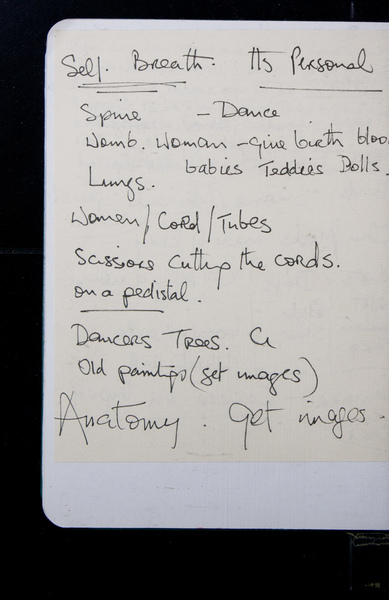 Self. Breath. Its Personal
Spine - Dance
Womb. Woman - give birth bloo
Lungs. babies Teddies Dolls.
Women / Cord / Tubes
Scissors cutting the cords.
on a pedistal.
Dancers Trees.
Old paintings (get images)
Anatomy. Get images.